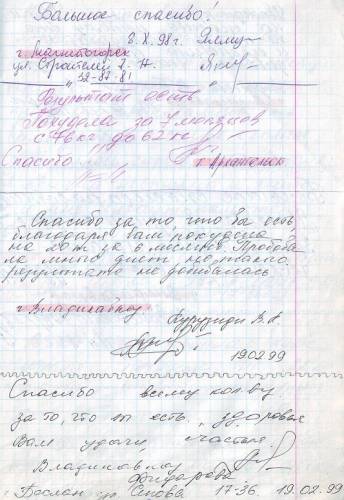 Большое спасибо!
3.X.98г.
г. Магнитогорск
ул. Строителей
"32-87-81
Результат есть
Похудела за 7 месяцев
с 78 кг до 62 кг
Спасибо
г.
Спасибо за то, что Вы есть
благодаря Вам, похудела
на за 6 месяцев. Пробова
ла много диет, но такого
результата не добивалась
г. Владикавказ
В. А.
19.02.99
Спасибо всему кол-ву
за то, что вы есть. здоровья
Вам удачи, счастья.
Владикавказ
Беслан ул. 17-36 19.02.99